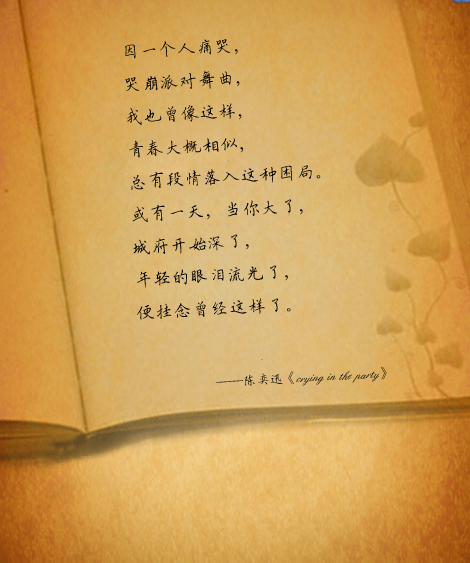 因一个人痛哭，
哭崩派对舞曲，
我也曾像这样，
青春大概相似，
总有段情落入这种困局。
或有一天，当你大了，
城府开始深了，
年轻的眼泪流光了，
便挂念曾经这样了。
——陈奕迅《crying in the party》